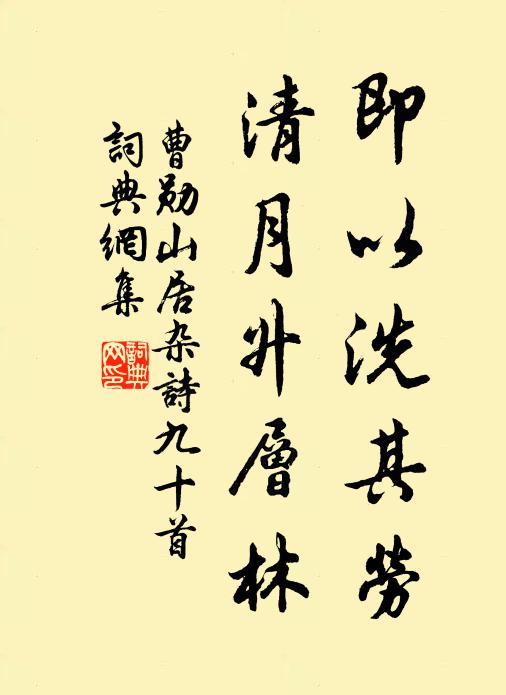 即以洗其勞
清月升層林
曹勛山居杂詩九十首
詞典網集
詞典網印